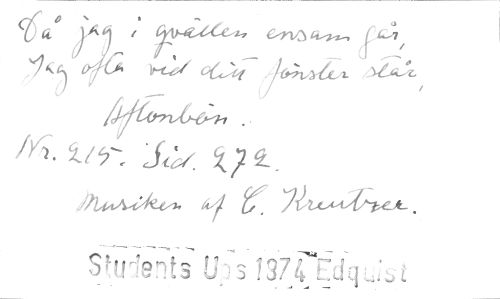 Då jag i qvällen ensam går,
Jag ofta vid ditt fönster står,
Aftonbön.
Nr. 215. Sid. 272.
Musiken af C. Kreutzer.
Students Ups 1874 Edquist